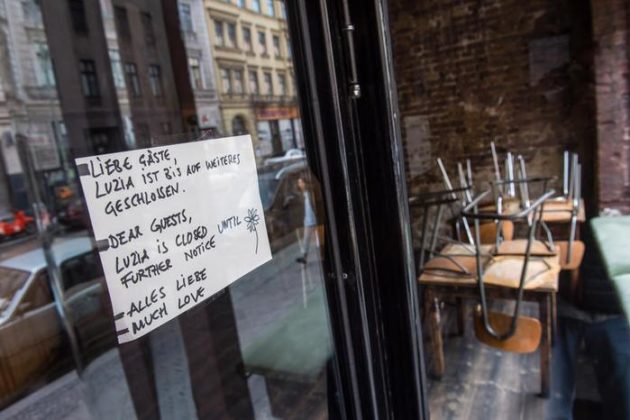 LIEBE GÄSTE,
LUZIA IST BIS AUF WEITERES
GESCHLOSSEN.
DEAR GUESTS,
LUZIA IS CLOSED UNTIL
FURTHER NOTICE
ALLES LIEBE
MUCH LOVE